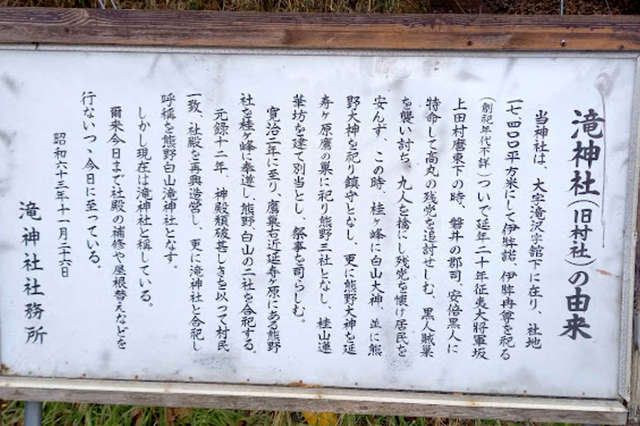 滝神社(旧村社)の由来
当神社は、大字滝沢字館下に在り、社地
一七、四〇〇平方米にして伊弉諾、伊弉冉尊を祀る
(創祀年代不詳)ついで延年二十年征夷大將軍坂
上田村麿東下の時、磐井の郡司、安倍黒人に
特命して高丸の残党を追討せしむ、黒人賊巣
を襲い討ち、九人を擒にし残党を懐け居民を
安んず、この時、桂ヶ峰に白山大神、並に熊
野大神を祀り鎮守となし、更に熊野大神を延
寿ヶ原鷹の巣に祀り熊野三社となし、桂山蓮
華坊を建て別当とし、祭事を司らしむ。
寛治二年に至り、鷹巣右近延寿ヶ原にある熊野
社を桂ヶ峰に奉遷し、熊野白山の二社を合祀する。
元録十二年、神殿頽破甚しきを以って村民
一致、社殿を再興造営し、更に滝神社と合祀し
呼稱を熊野白山滝神社となす。
しかし現在は滝神社と稱している。
爾来今日まで社殿の補修や屋根替えなどを
行ないつゝ今日に至っている。
昭和六十三年十一月二十六日
滝神社社務所